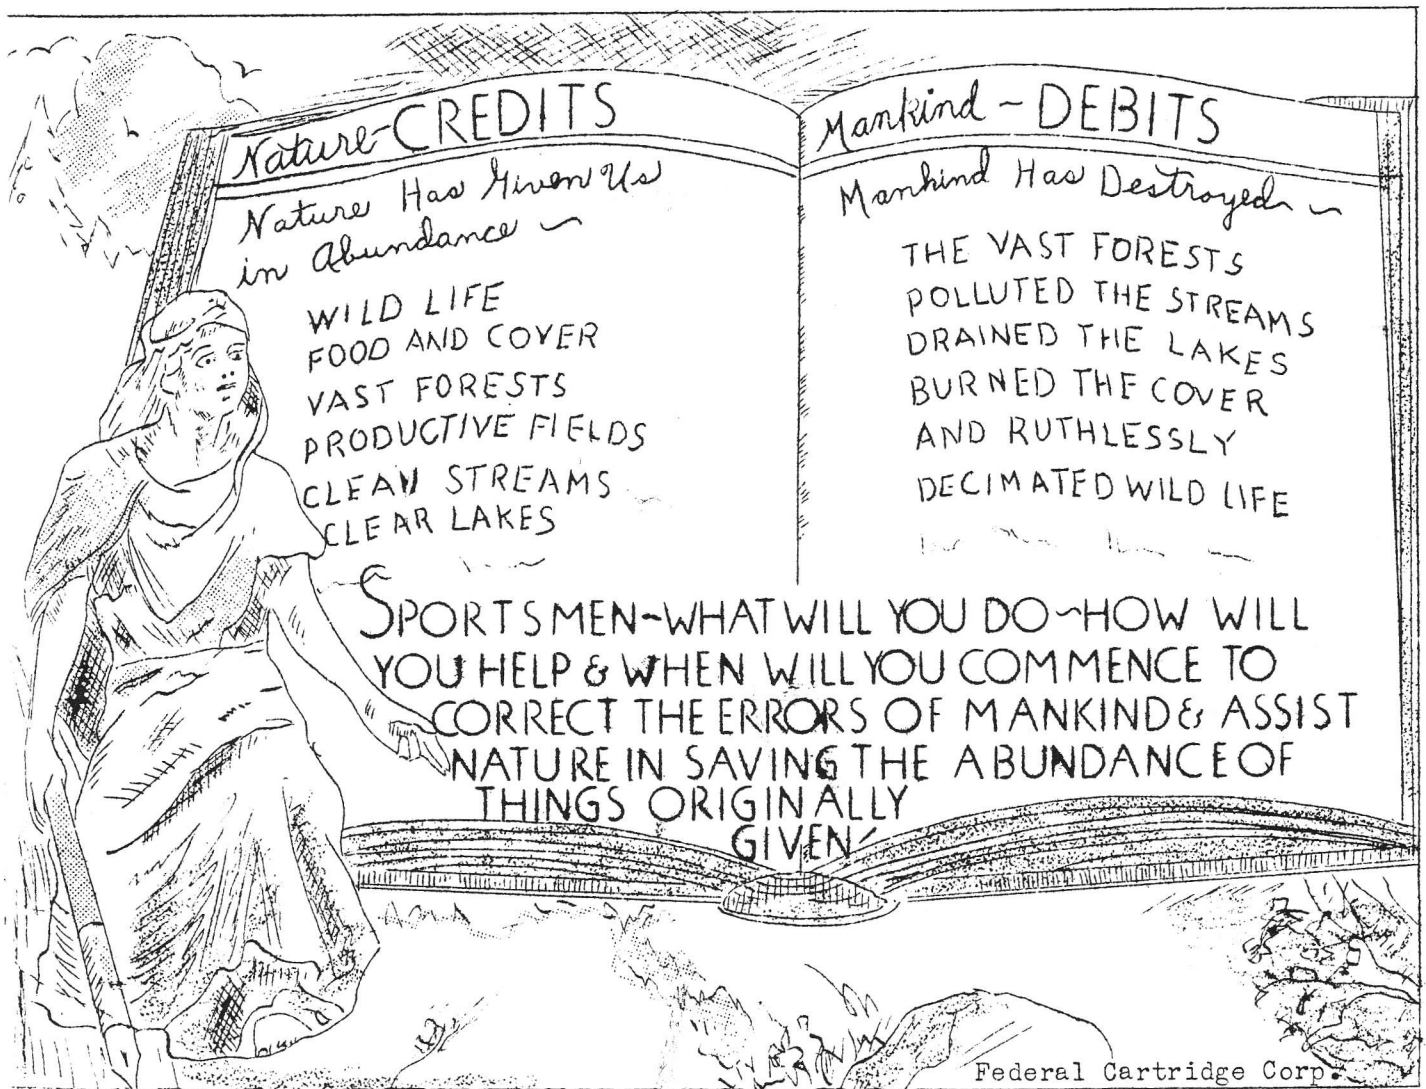 Nature-CREDITS
Nature Has Given Us
in Abundance ~
WILD LIFE
FOOD AND COVER
VAST FORESTS
PRODUCTIVE FIELDS
CLEAN STREAMS
CLEAR LAKES
Mankind - DEBITS
Mankind Has Destroyed ~
THE VAST FORESTS
POLLUTED THE STREAMS
DRAINED THE LAKES
BURNED THE COVER
AND RUTHLESSLY
DECIMATED WILD LIFE
SPORTSMEN-WHAT WILL YOU DO~HOW WILL
YOU HELP & WHEN WILL YOU COMMENCE TO
CORRECT THE ERRORS OF MANKIND & ASSIST
NATURE IN SAVING THE ABUNDANCE OF
THINGS ORIGINALLY
GIVEN
Federal Cartridge Corp.